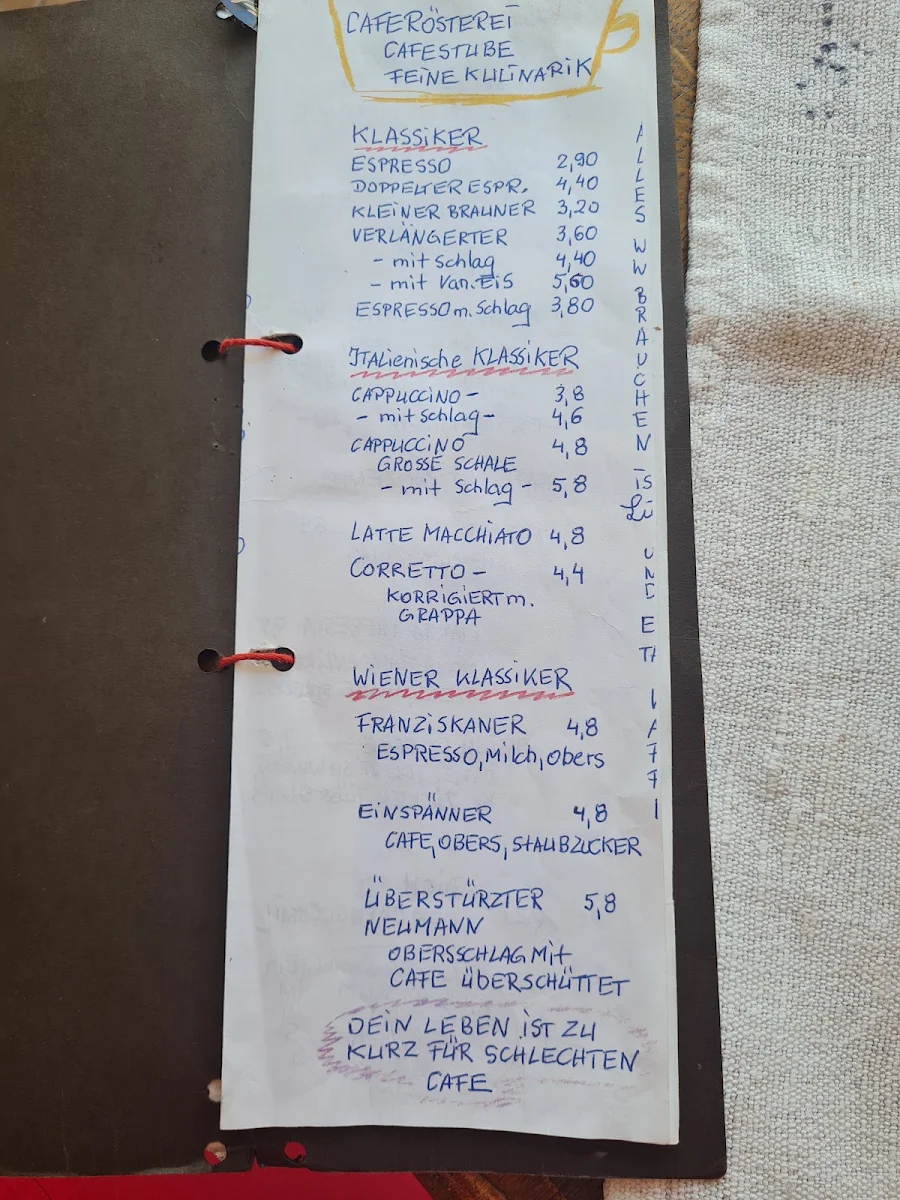 CAFERÖSTEREI
CAFESTUBE
FEINE KULINARIK
KLASSIKER
ESPRESSO 2,90
DOPPELTER ESPR. 4,40
KLEINER BRAUNER 3,20
VERLÄNGERTER 3,60
- mit Schlag 4,40
- mit Van.EiS 5,60
ESPRESSO m. Schlag 3,80
ITALienische KLASSIKER
CAPPUCCINO - 3,8
- mit Schlag - 4,6
CAPPUCCINO 4,8
GROSSE SCHALE
- mit Schlag - 5,8
LATTE MACCHIATO 4,8
CORRETTO - 4,4
KORRIGIERT m.
GRAPPA
WIENER KLASSIKER
FRANZISKANER 4,8
ESPRESSO, Milch, obers
EINSPÄNNER 4,8
CAFE, OBERS, STAUBZUCKER
ÜBERSTÜRZTER 5,8
NEUMANN
OBERSSCHLAG Mit
CAFE ÜBERSCHÜTTET
DEIN LEBEN IST ZU
KURZ FÜR SCHLECHTEN
CAFE
ALLES
WW
BRAUCHEN